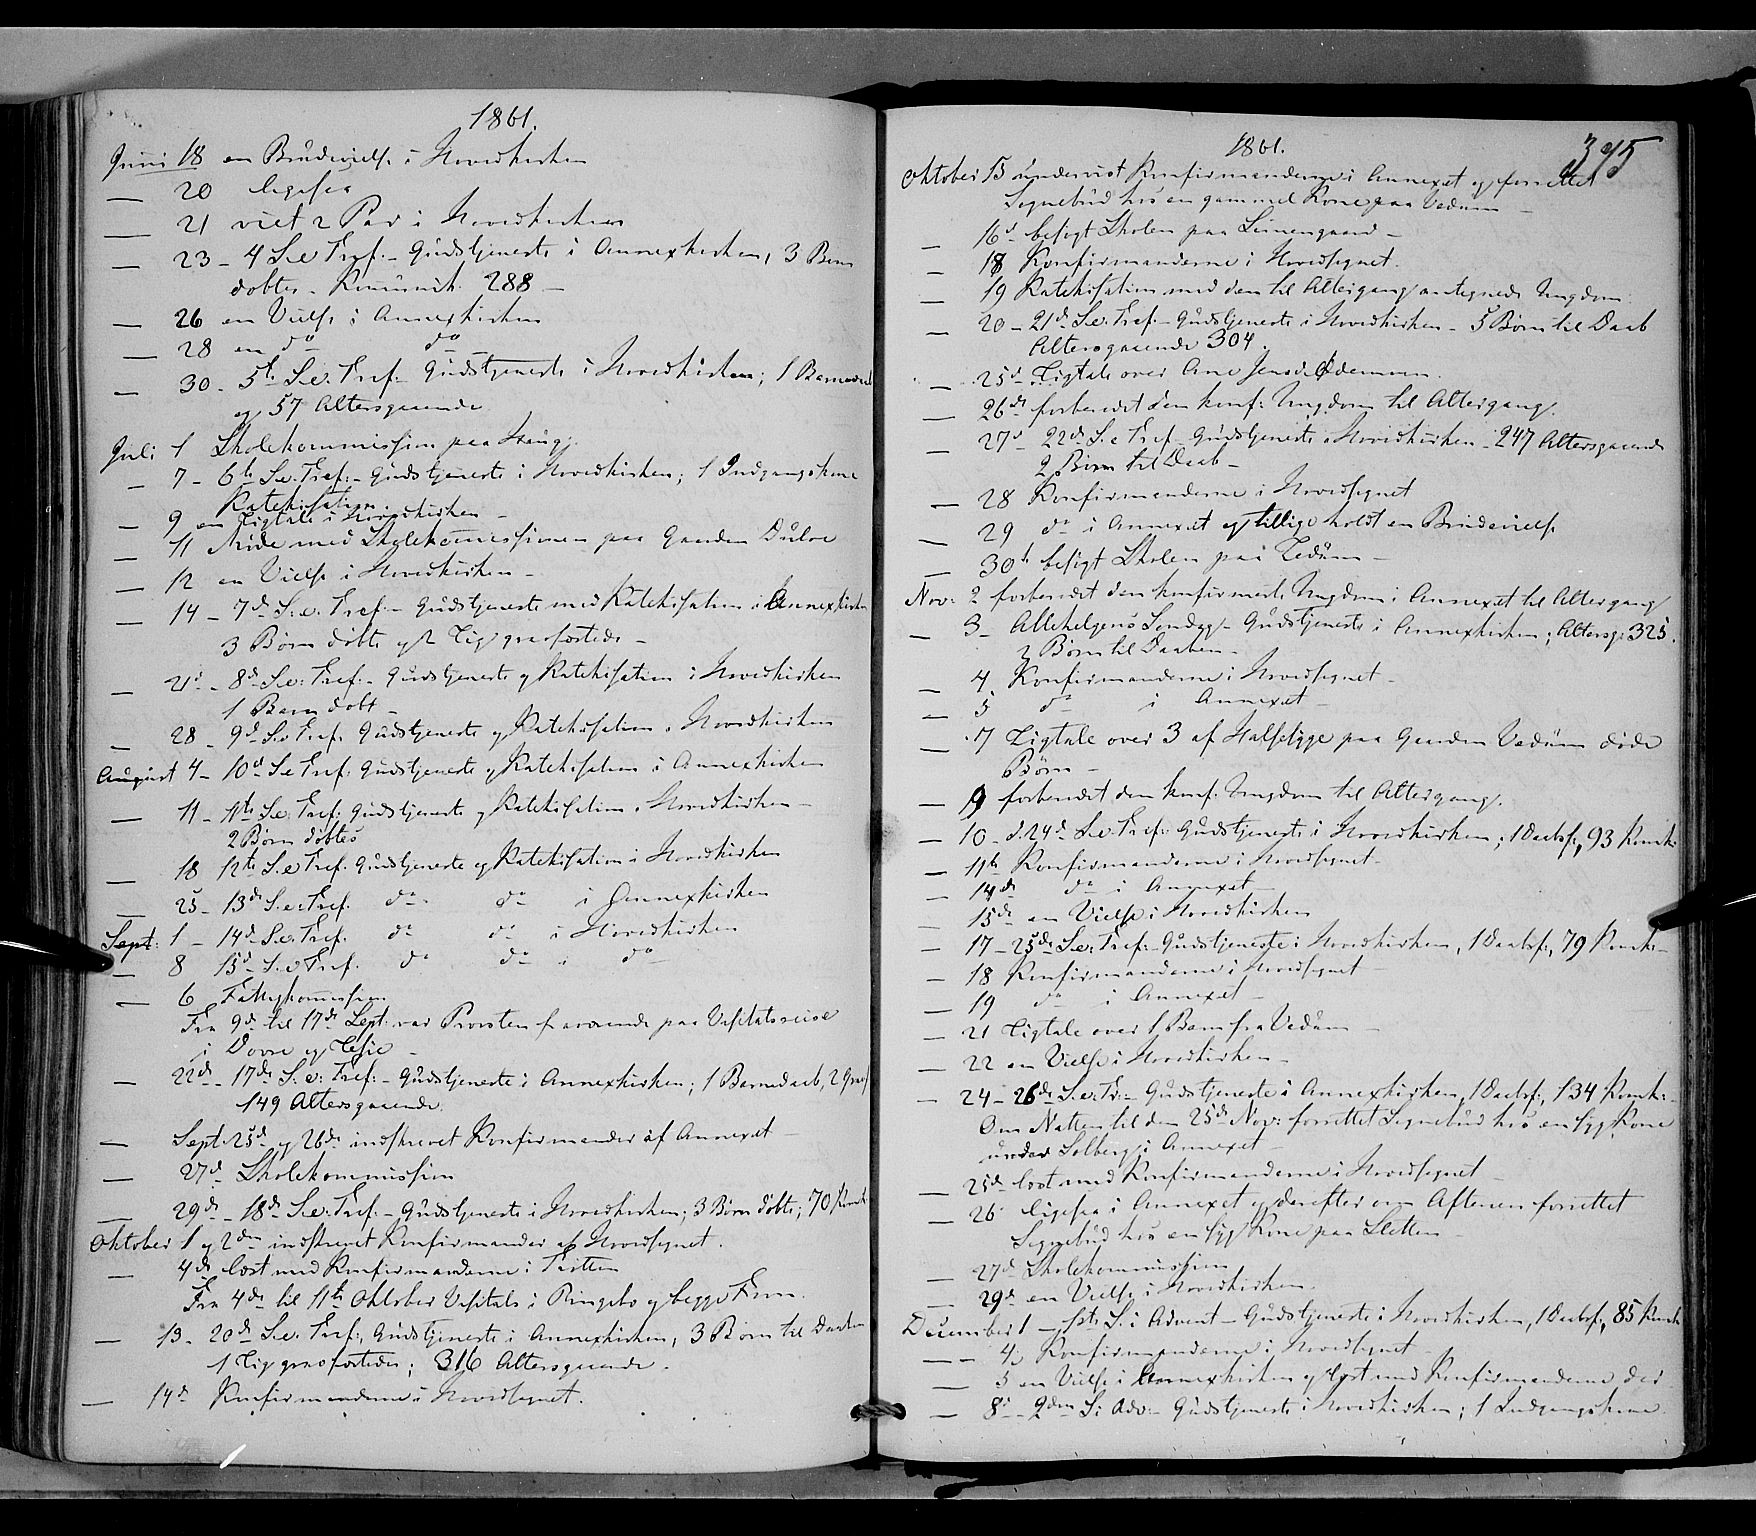 1861.
Juni 18 en Brudevielse i Hovedkirken
— 20 ligesaa
— 21 viet 2 Par i Hovedkirken
— 23 – 4 S. e. Tref. – Gudstjeneste i Annexkirken, 3 Børn
døbte – Kommunik. 288 –
— 26 en Vielse i Annexkirken
— 28 en do do
— 30 – 5te S. e. Tref. – Gudstjeneste i Hovedkirken; 1 Barnedaab
og 57 Altersgaaende
Juli 1 Skolekommission paa Haug.
— 7 – 6te S. e. Tref. – Gudstjeneste i Hovedkirken; 1 Indgangskone
Katekisation.
— 9 en Ligtale i Hovedkirken –
— 11 Møde med Skolekommissionen paa Gaarden
— 12 en Vielse i Hovedkirken –
— 14 – 7de S. e. Tref. – Gudstjeneste med Katekisation i Annexkirken
3 Børn døbte og 2 Lig gravfæstede –
— 21de – 8de S. e. Tref. – Gudstjeneste og Katekisation i Hovedkirken
1 Barn døbt –
— 28 – 9de S. e. Tref. Gudstjeneste og Katekisation i Hovedkirken
August 4 – 10de S. e. Tref. Gudstjeneste og Katekisation i Annexkirken
— 11 – 11te S. e. Tref. Gudstjeneste og Katekisation i Hovedkirken –
2 Børn døbtes
— 18 12te S. e. Tref. Gudstjeneste og Katekisation i Hovedkirken
— 25 – 13de S. e. Tref. do do i Annexkirken
Sept. 1 – 14de S. e. Tref. do do i Hovedkirken
— 8 15de S. e. Tref. do do i do
— 6 Fattigkommission
Fra 9de til 17de Sept. var Provsten fraværende paa Visitatsreise
i Dovre og Lesje –
— 22de – 17de S. e. Tref. – Gudstjeneste i Annexkirken; 1 Barnedaab, 2 Gravf
149 Altersgaaende.
— Sept. 25de og 26de indskrevet Konfirmander af Annexet –
— 27de Skolekommission
— 29de – 18de S. e. Tref. – Gudstjeneste i Hovedkirken; 3 Børn døbte; 70 Komk
Oktober 1 og 2den indskrevet Konfirmander af Hovedsognet.
— 4de læst med Konfirmanderne i Tretten
Fra 4de til 11te Oktober Visitats i Ringebo og begge Fron.
— 13 – 20de S. e. Tref., Gudstjeneste i Annexkirken, 3 Børn til Daaben
1 Lig gravfæstedes; 316 Altersgaaende.
— 14de Konfirmanderne i Hovedsognet.
1861.
375
Oktober 15 undervist Konfirmanderne i Annexet og forrettet
Sognebud hos en gammel Kone paa Vedum –
— 16de besøgt Skolen paa
— 18 Konfirmanderne i Hovedsognet.
— 19 Katekisation med den til Altergang antegnede Ungdom.
— 20 – 21de S. e. Tref. – Gudstjeneste i Hovedkirken – 5 Børn til Daab
Altersgaaende 304.
— 25de Ligtale over Ane Jensd.
— 26de forberedt den konf. Ungdom til Altergang.
— 27de 22de S. e. Tref – Gudstjeneste i Hovedkirken – 247 Altersgaaende
2 Børn til Daab –
— 28 Konfirmanderne i Hovedsognet
— 29 do i Annexet og tillige holdt en Brudevielse
— 30te besøgt Skolen paa
Nov. 2 forberedt den konfirmerte Ungdom i Annexet til Altergang
— 3 – Allehelgens Søndag – Gudstjeneste i Annexkirken; Altersg. 325.
2 Børn til Daaben –
— 4 Konfirmanderne i Hovedsognet –
— 5 do i Annexet –
— 7 Ligtale over 3 af Halssyge paa Gaarden Vedum døde
Børn –
— 9 forberedt den konf. Ungdom til Altergang.
— 10 – d. 24de S. e. Tref. Gudstjeneste i Hovedkirken; 1 Daabsf., 93 Komk.
— 11te Konfirmanderne i Hovedsognet –
— 14de do i Annexet –
— 15de en Vielse i Hovedkirken
— 17 – 25de S. e. Tref. – Gudstjeneste i Hovedkirken, 1 Daabsf., 79 Komk. –
— 18 Konfirmanderne i Hovedsognet –
— 19 do i Annexet –
— 21 Ligtale over 1 Barn fra Vedum –
— 22 en Vielse i Hovedkirken –
— 24 – 26de S. e. Tr. – Gudstjeneste i Annexkirken, 1 Daabsf., 134 Komk. –
Om Natten til den 25de Nov. forrettet Sognebud hos en syg Kone
under Solberg i Annexet –
— 25de læst med Konfirmanderne i Hovedsognet –
— 26 ligesaa i Annexet og derefter om Aftenen forrettet
Sognebud hos en syg Kone paa Sletten –
— 27de Skolekommission
— 29de en Vielse i Hovedkirken.
December 1 – 1ste S. i Advent – Gudstjeneste i Hovedkirken, 1 Daabsf., 85 Komk
— 4de Konfirmanderne i Hovedsognet –
— 5 en Vielse i Annexkirken og læst med Konfirmanderne der
— 8de – 2den S. i Adv. – Gudstjeneste i Hovedkirken; 1 Indgangskone.